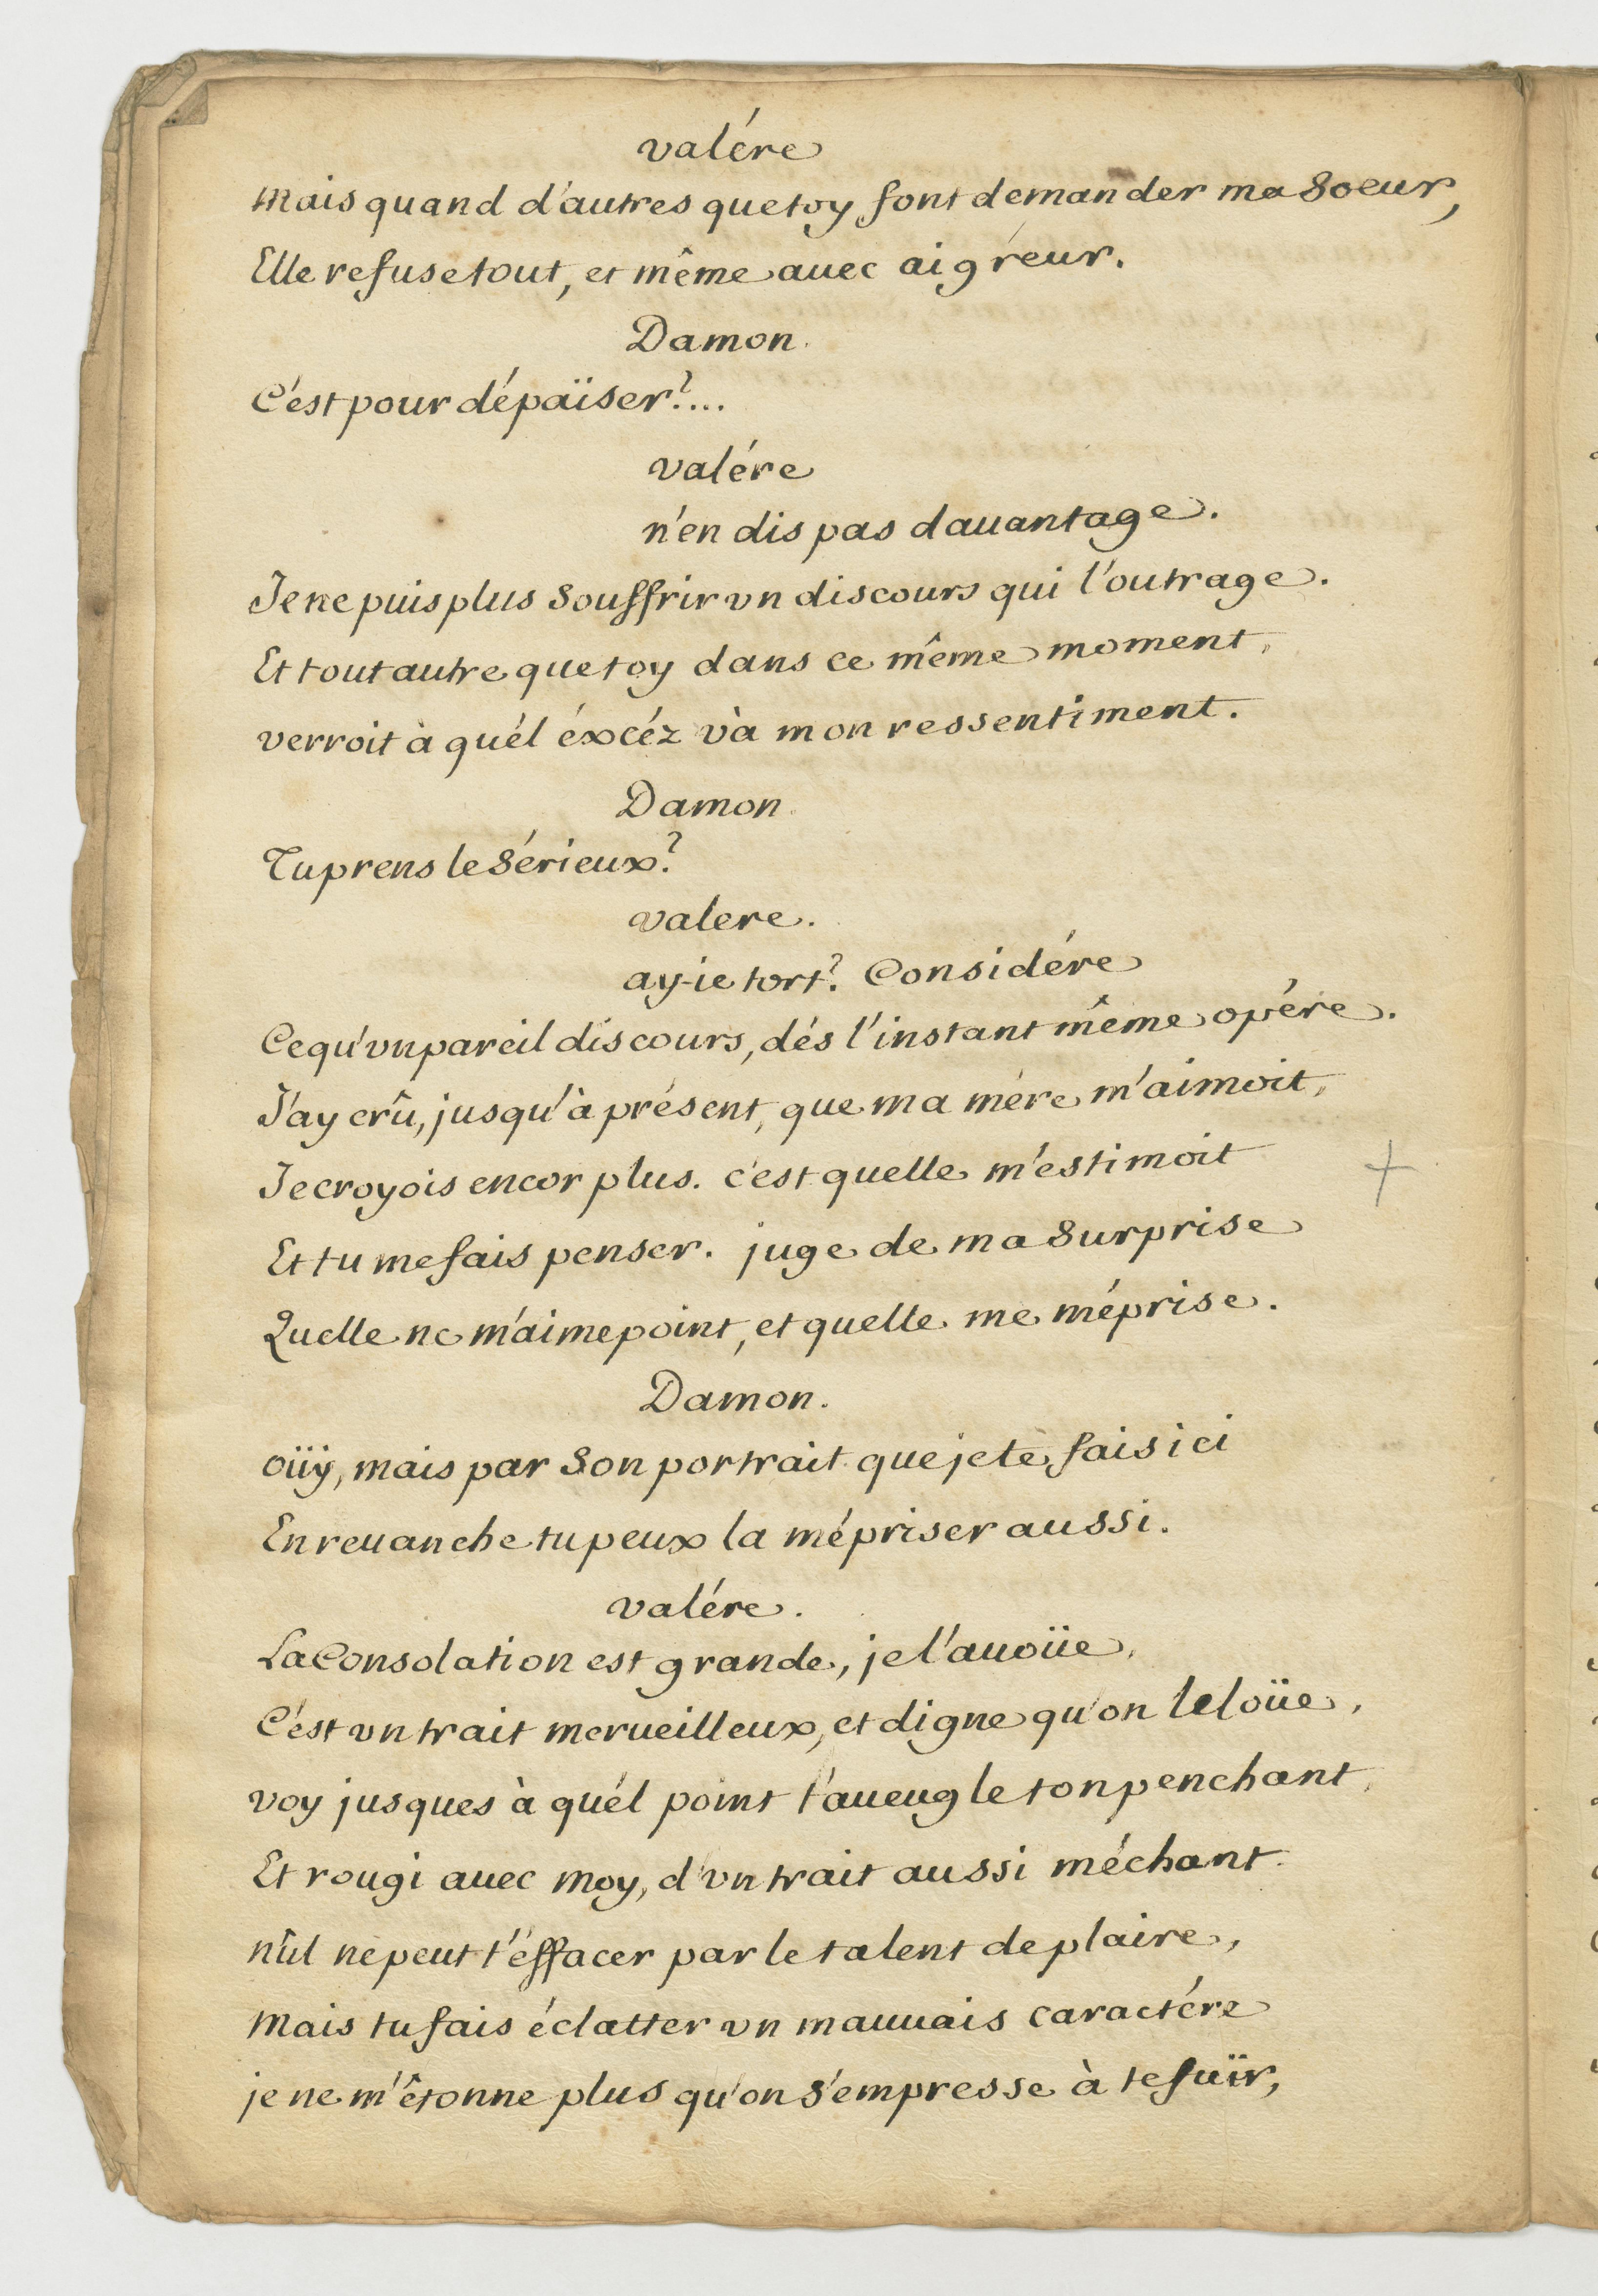 valére
Mais quand d'autres que toy font demander ma Soeur,
Elle refuse tout, et même auec aigreur.
Damon.
C'est pour dépaïser?....
valére
n'en dis pas dauantage.
Je ne puis plus Souffrir vn discours qui l'outrage.
Et tout autre que toy dans ce même moment,
verroit à quél éxcéz và mon ressentiment.
Damon.
Tu prens le Sérieux?
valere.
ay-ie tort? Considére
Ce qu'vn pareil discours, dés l'instant même opére.
J'ay crû, jusqu'à présent, que ma mére m'aimoit,
Je croyois encor plus. c'est quelle m'estimoit
Et tu me fais penser. juge de ma Surprise
Quelle ne m'aime point, et quelle me méprise.
Damon.
oüy, mais par Son portrait que je te fais ici
En reuanche tu peux la mépriser aussi.
valére.
La Consolation est grande, je l'auoüe,
C'est vn trait merueilleux, et digne qu'on le loüe,
voy jusques à quél point t'aueugle ton penchant,
Et rougi auec moy, d'vn trait aussi méchant.
nûl ne peut t'éffacer par le talent de plaire,
Mais tu fais éclatter vn mauuais caractére
je ne m'êtonne plus qu'on s'empresse à te fuïr,